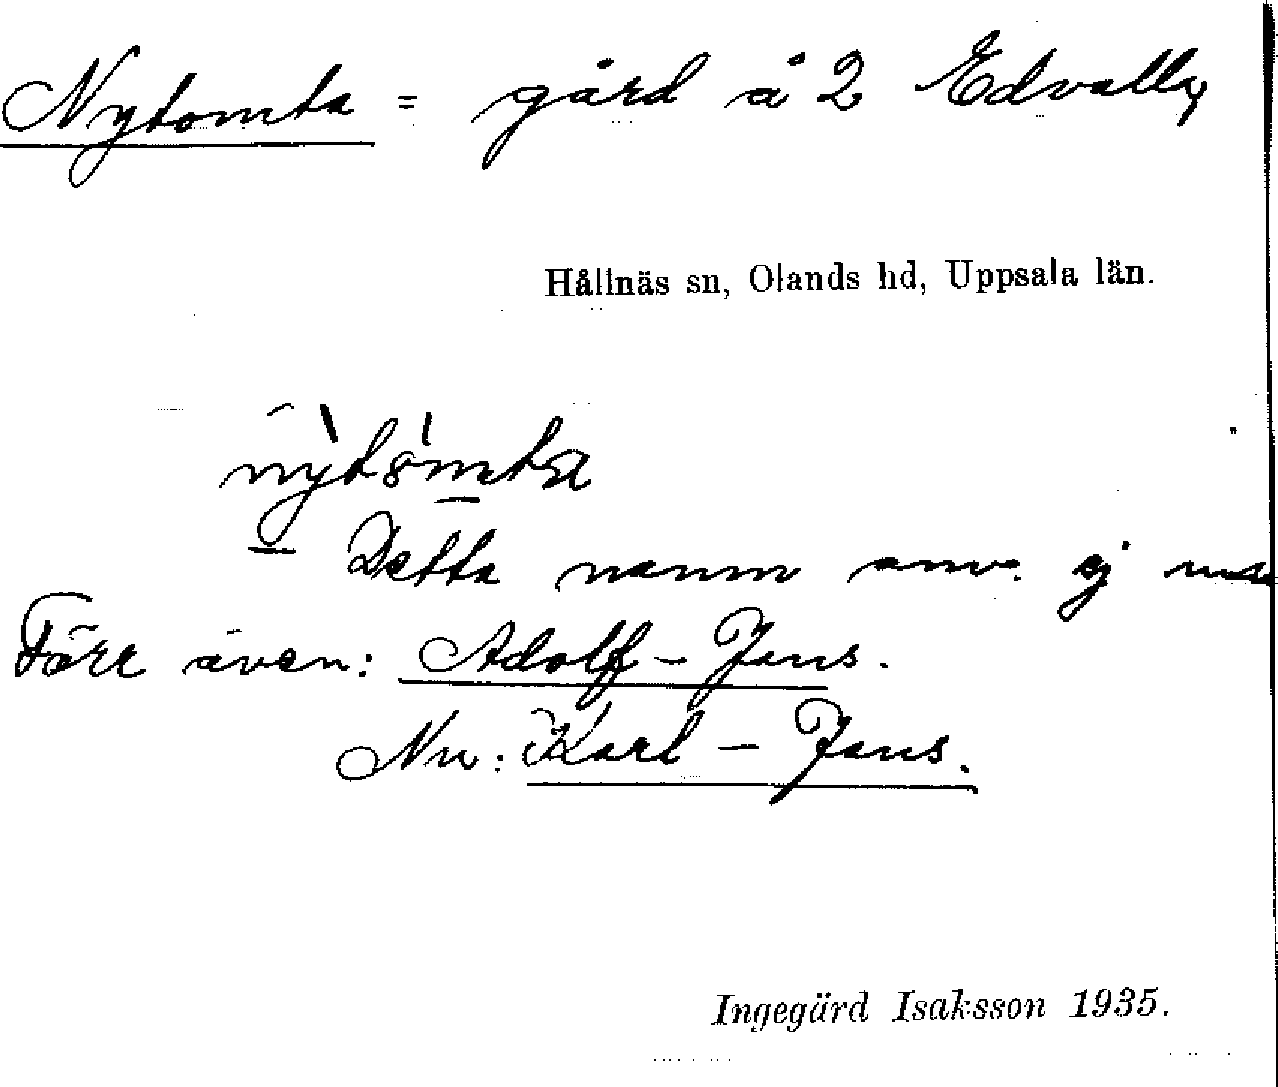 Nytomta = gård å 2 Edvalla,
Hållnäs sn, Olands hd, Uppsala län.
Detta namn anv. ej
Förr även: Adolf - Jans.
Nu: Karl - Jans.
Ingegärd Isaksson 1935.